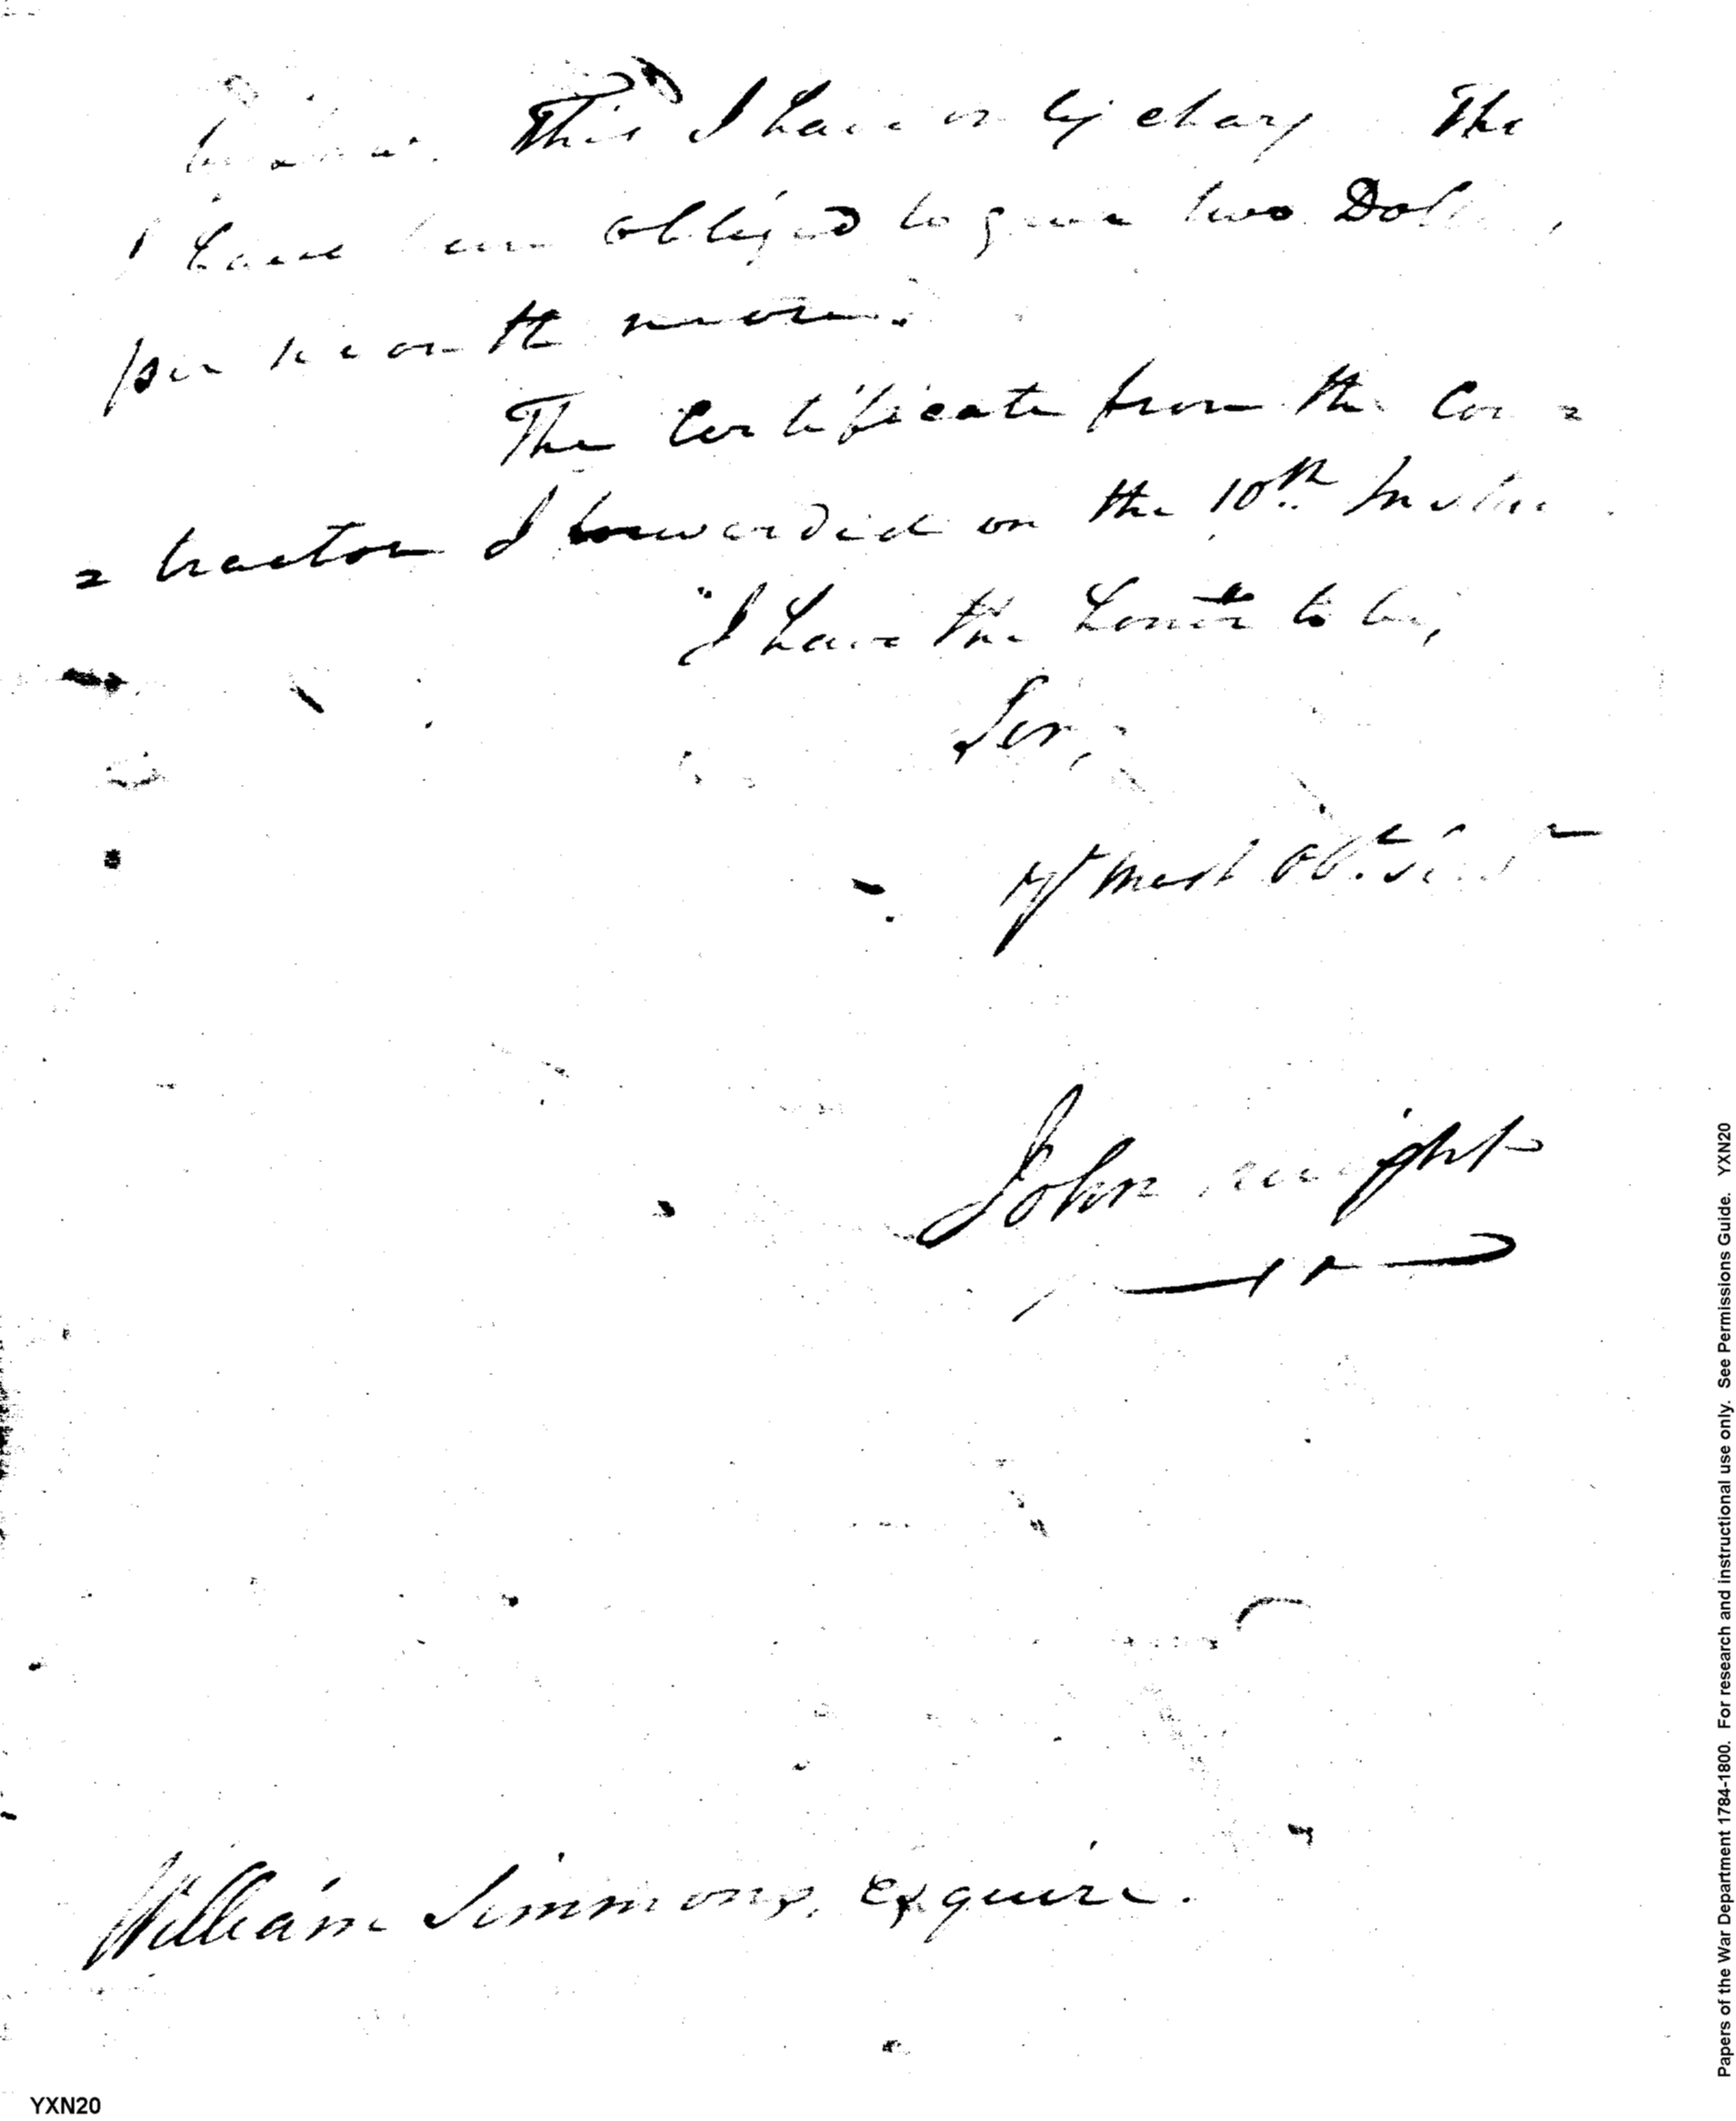 This I have only charg The
I have been obliged to give two Doll
per month more.
The Certificate from the Con =
= tractor I forwarded on the 10th Instn
I have the honor to be,
Sir,
Yr most Obt. Servt
John Wright
William Simmons, Esquire.
YXN20
Papers of the War Department 1784-1800. For research and instructional use only. See Permissions Guide. YXN20